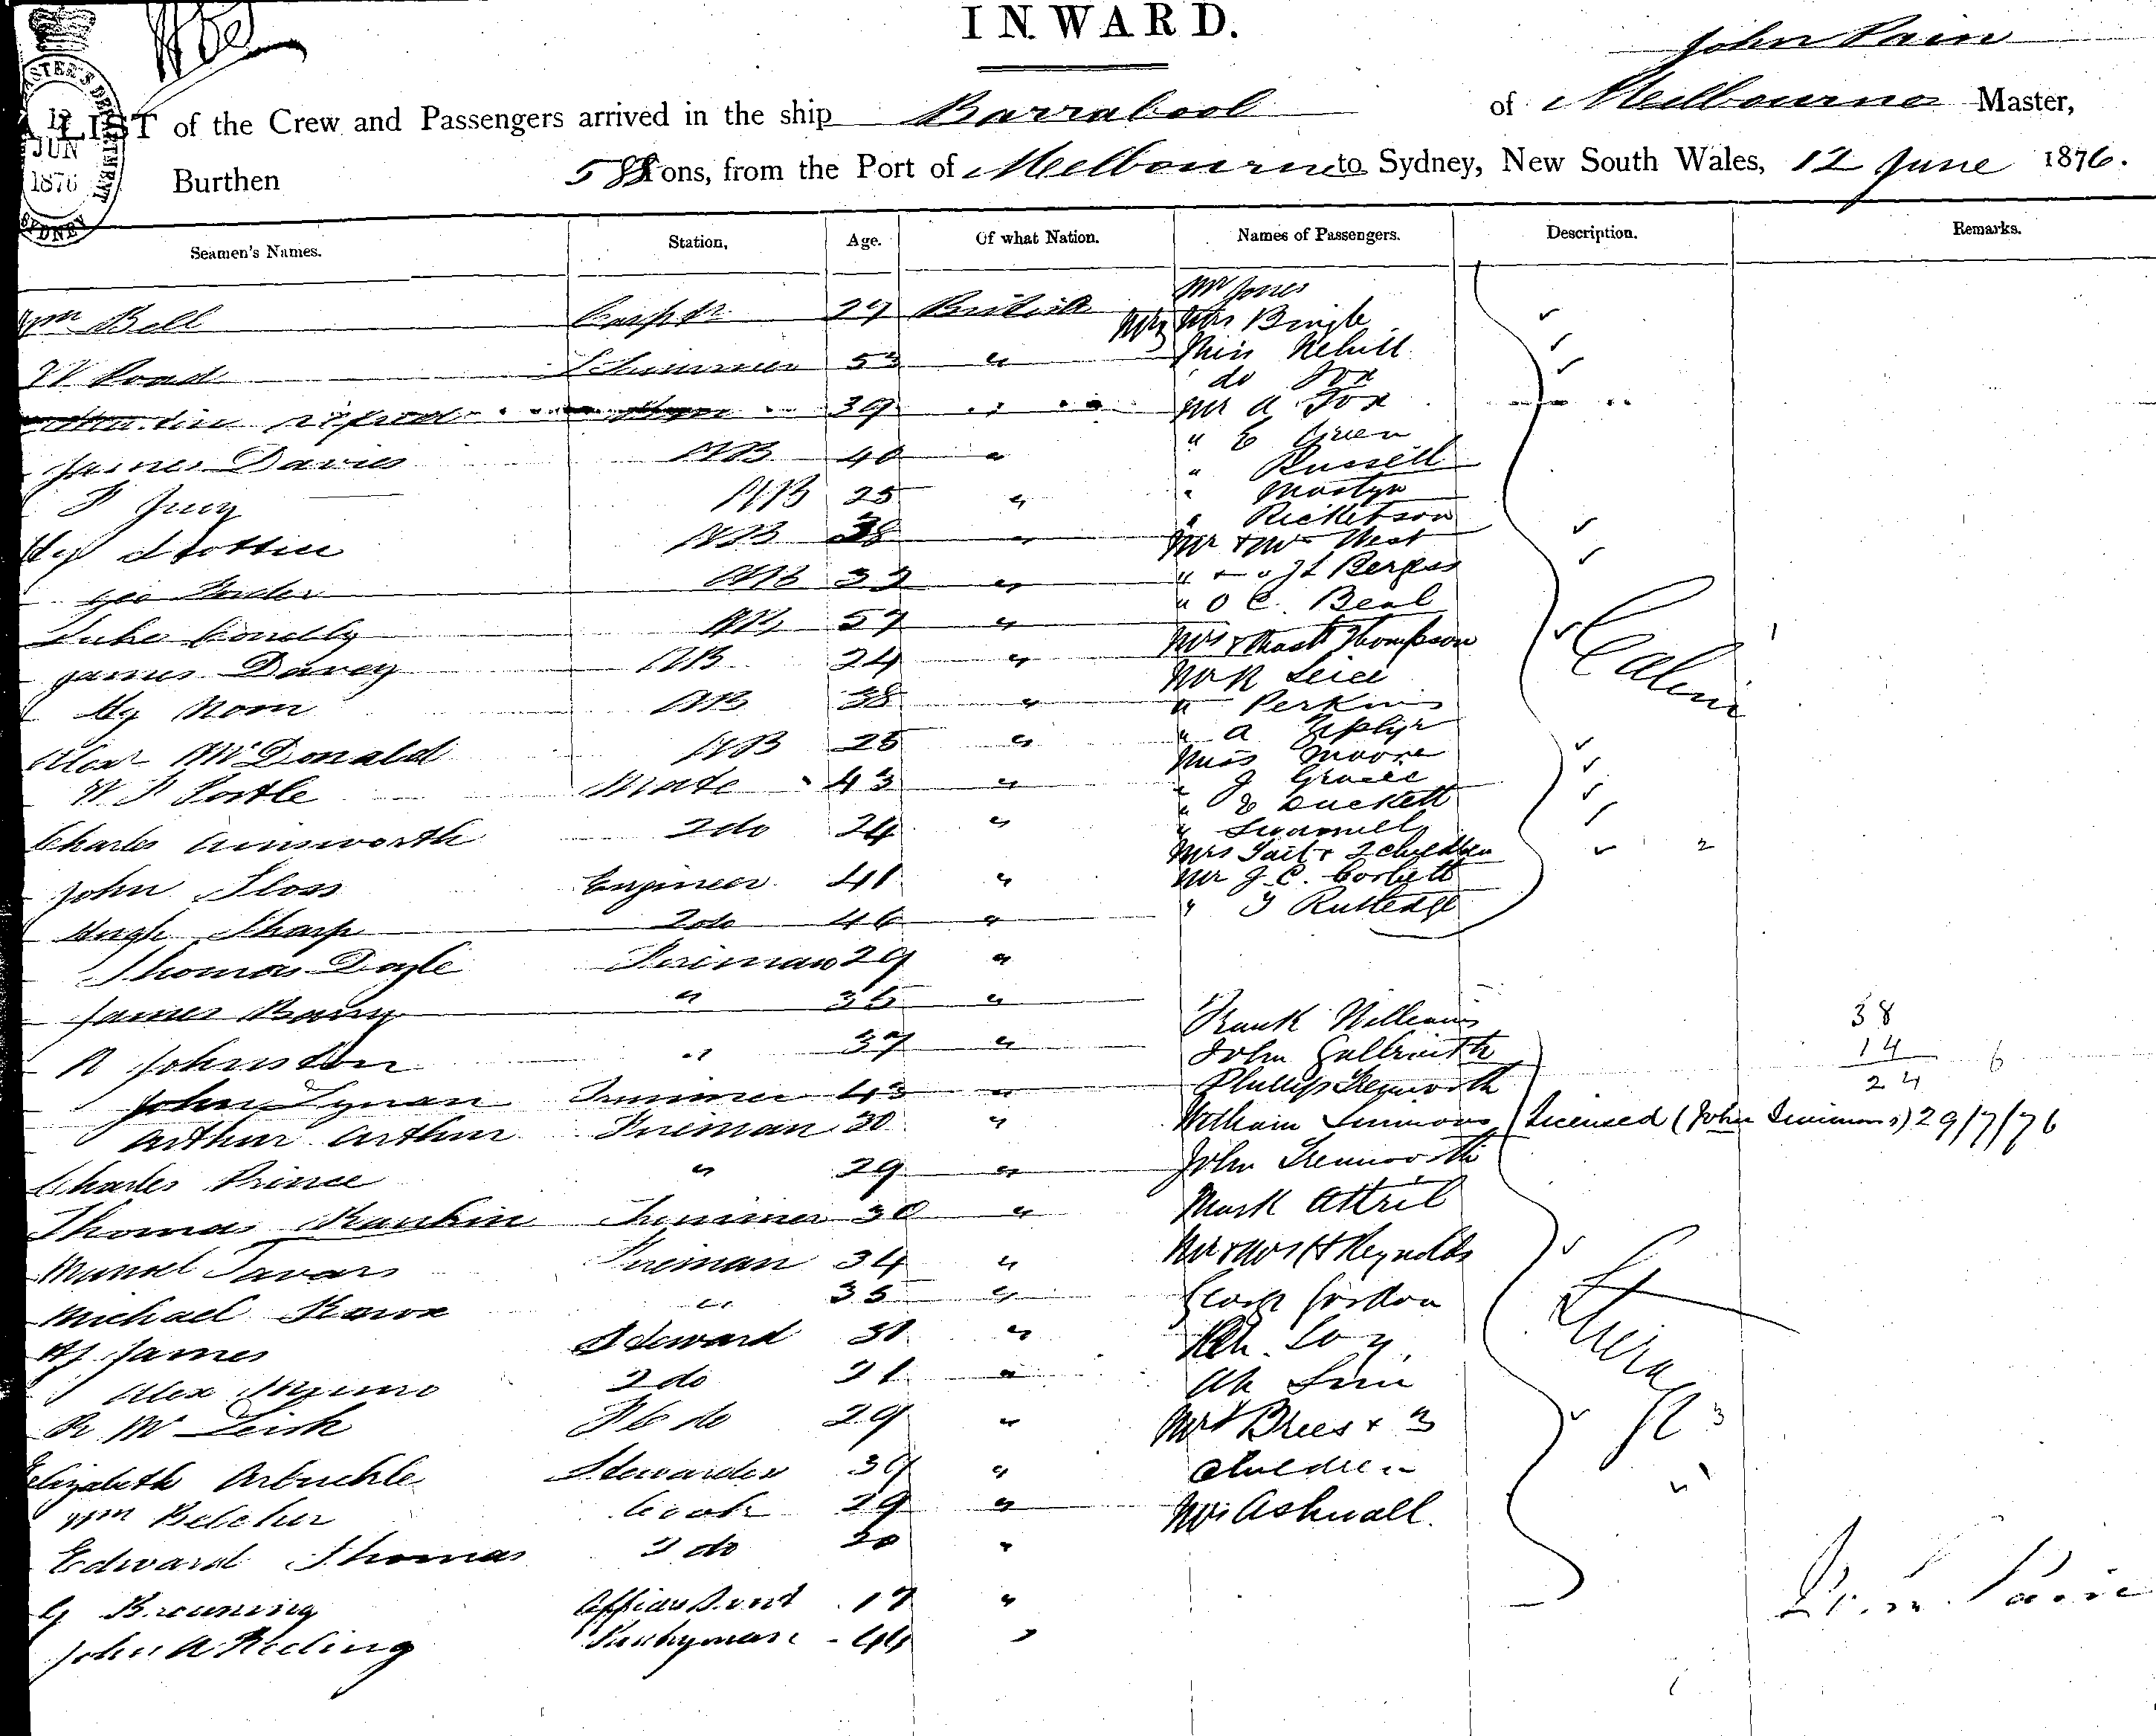 INWARD.
John Pain
A LIST of the Crew and Passengers arrived in the ship Barrabool of Melbourne Master,
Burthen 588 Tons, from the Port of Melbourne to Sydney, New South Wales, 12 June 1876.
12 JUN 1876
SYDNEY
Seamen's Names. Station, Age. Of what Nation. Names of Passengers. Description. Remarks.
Wm Bell Carptr 29 British
W Pond 53 "
39
James Davies AB 40 "
AB 25 "
AB 38 "
Geo AB "
Luke Conolly AB 57 "
James Davey AB 24 "
Hy Nom AB 38 "
Alexr McDonald AB 25 "
W P Postle Mate 43 "
Charles Ainsworth 2 do 24 "
John Sloss Engineer 41 "
Hugh Sharp 2 do 46 "
Thomas Doyle Fireman 29 "
James Barry " 35 "
R Johnston " 37 "
John Lynan Trimmer 43 "
Arthur Arthur Fireman 30 "
Charles Prince " 29 "
Thomas Rankin Trimmer 30 "
Manuel Tavars Fireman 34 "
Michael " 35 "
HJ James Steward 31 "
Alex Munro 2 do 21 "
R McLeish 29 "
Elizabeth Arbuckle Stewardess 39 "
Wm Belcher Cook 29 "
Edward Thomas 2 do 20 "
G Browning 17 "
John A Keeling Pantryman 44 "
Mr Jones
Mrs Bingle
Miss Nehill
do Fox
Mr A Fox
" E Green
" Russell
" Mostyn
" Ricketson
Mr & Mrs West
" & "
" O C. Beal
Mrs & Mast Thompson
Mr R
" Perkins
" A
Miss Moore
" J Gracie
" E Duckett
"
Mrs Tait & 2 children 2
Mr J. C. Corbett
" Rutledge
Cabin
Frank Williams
John Galbraith
Phillip Trenworth
William Simmons Licensed (John Simmons) 29/7/76
John Trenworth
Mark Attril
Mr & Mrs H Reynolds
George Gordon
Ah
Mrs Brees & 3
children
Mrs Ashwall.
Steerage
3
38
14
24
6
John Pain